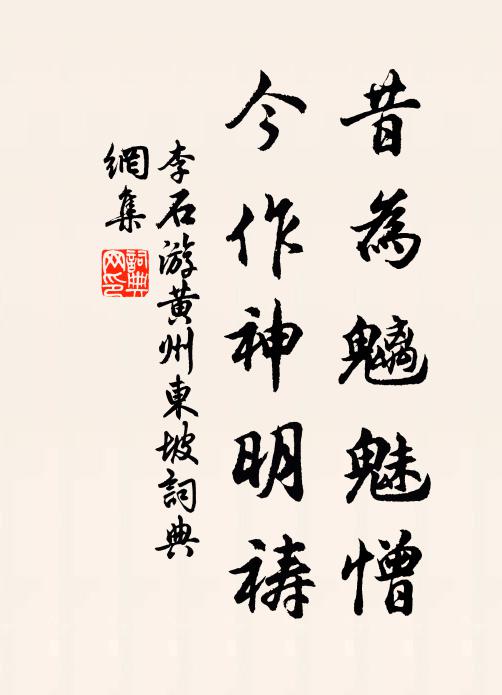 昔為魑魅憎
今作神明禱
李石游黃州東坡詞典
網集
詞典
网印